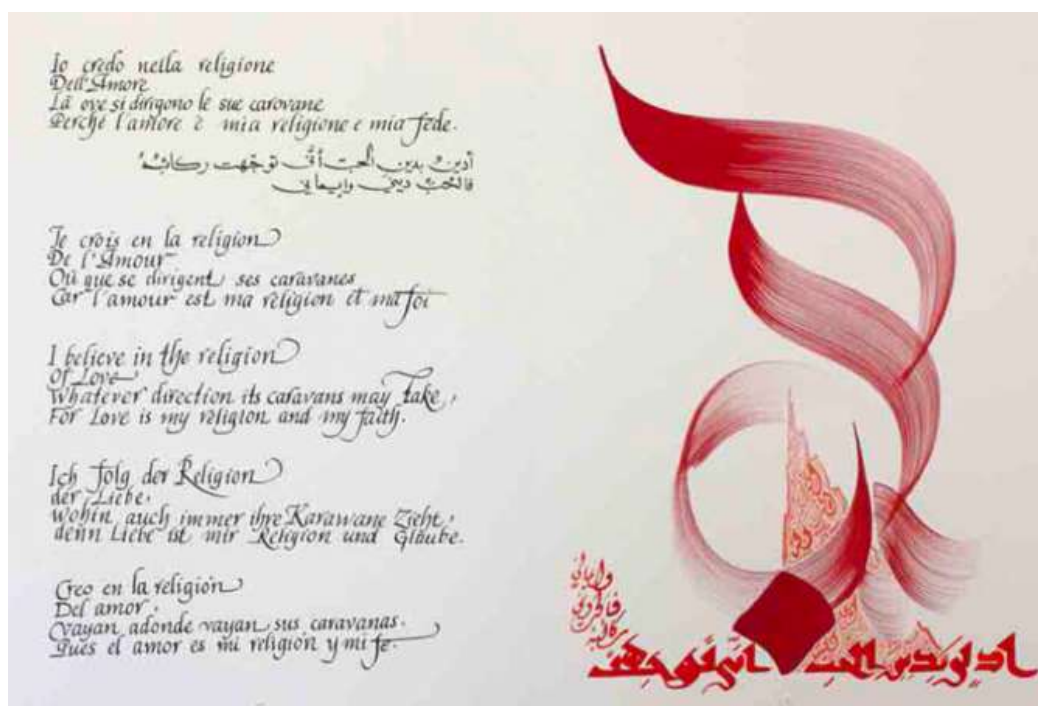 Io credo nella religione
Dell'Amore
Là ove si dirigono le sue carovane
Perché l'amore è mia religione e mia fede.
أدين بدين الحب أنّى توجّهت ركائبه
فالحب ديني وإيماني
Je crois en la religion
De l'Amour
Où que se dirigent ses caravanes
Car l'amour est ma religion et ma foi
I believe in the religion
Of Love
Whatever direction its caravans may take,
For Love is my religion and my faith.
Ich folg der Religion
der Liebe,
wohin auch immer ihre Karawane zieht,
denn Liebe ist mir Religion und Glaube.
Creo en la religión
Del amor,
vayan adonde vayan sus caravanas.
Pues el amor es mi religión y mi fe.
الحب
وإيماني
فالحب ديني
ركائبه
أدين بدين الحب أنّى توجهت